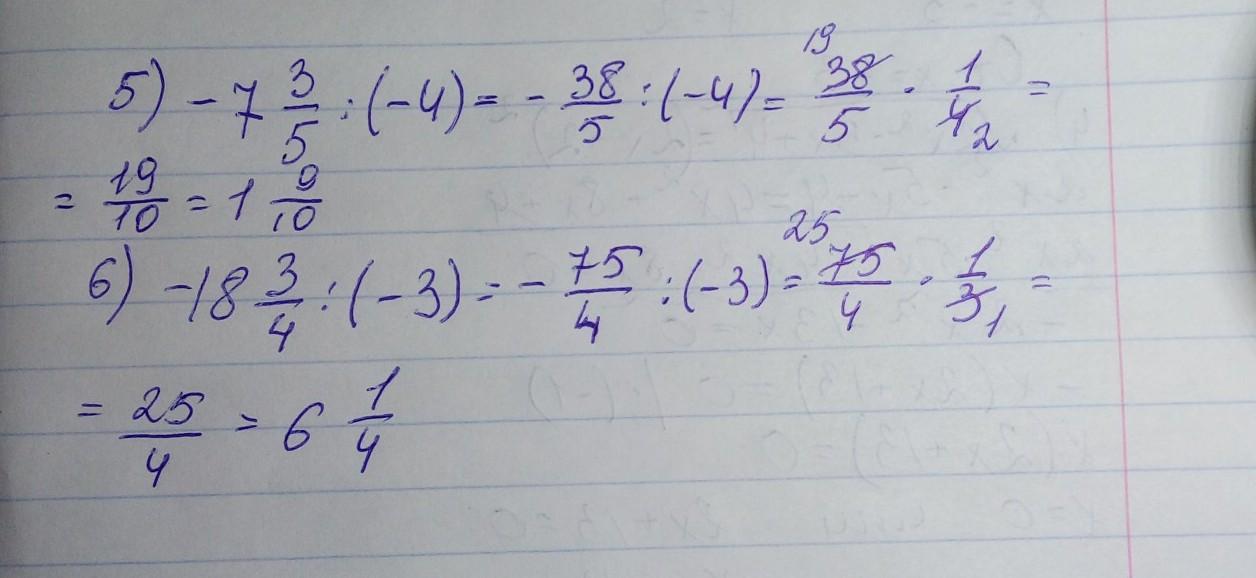 5) -7 3/5 : (-4) = - 38/5 : (-4) = 19 38/5 · 1/4 2 =
= 19/10 = 1 9/10
6) -18 3/4 : (-3) = - 75/4 : (-3) = 25 75/4 · 1/3 1 =
= 25/4 = 6 1/4